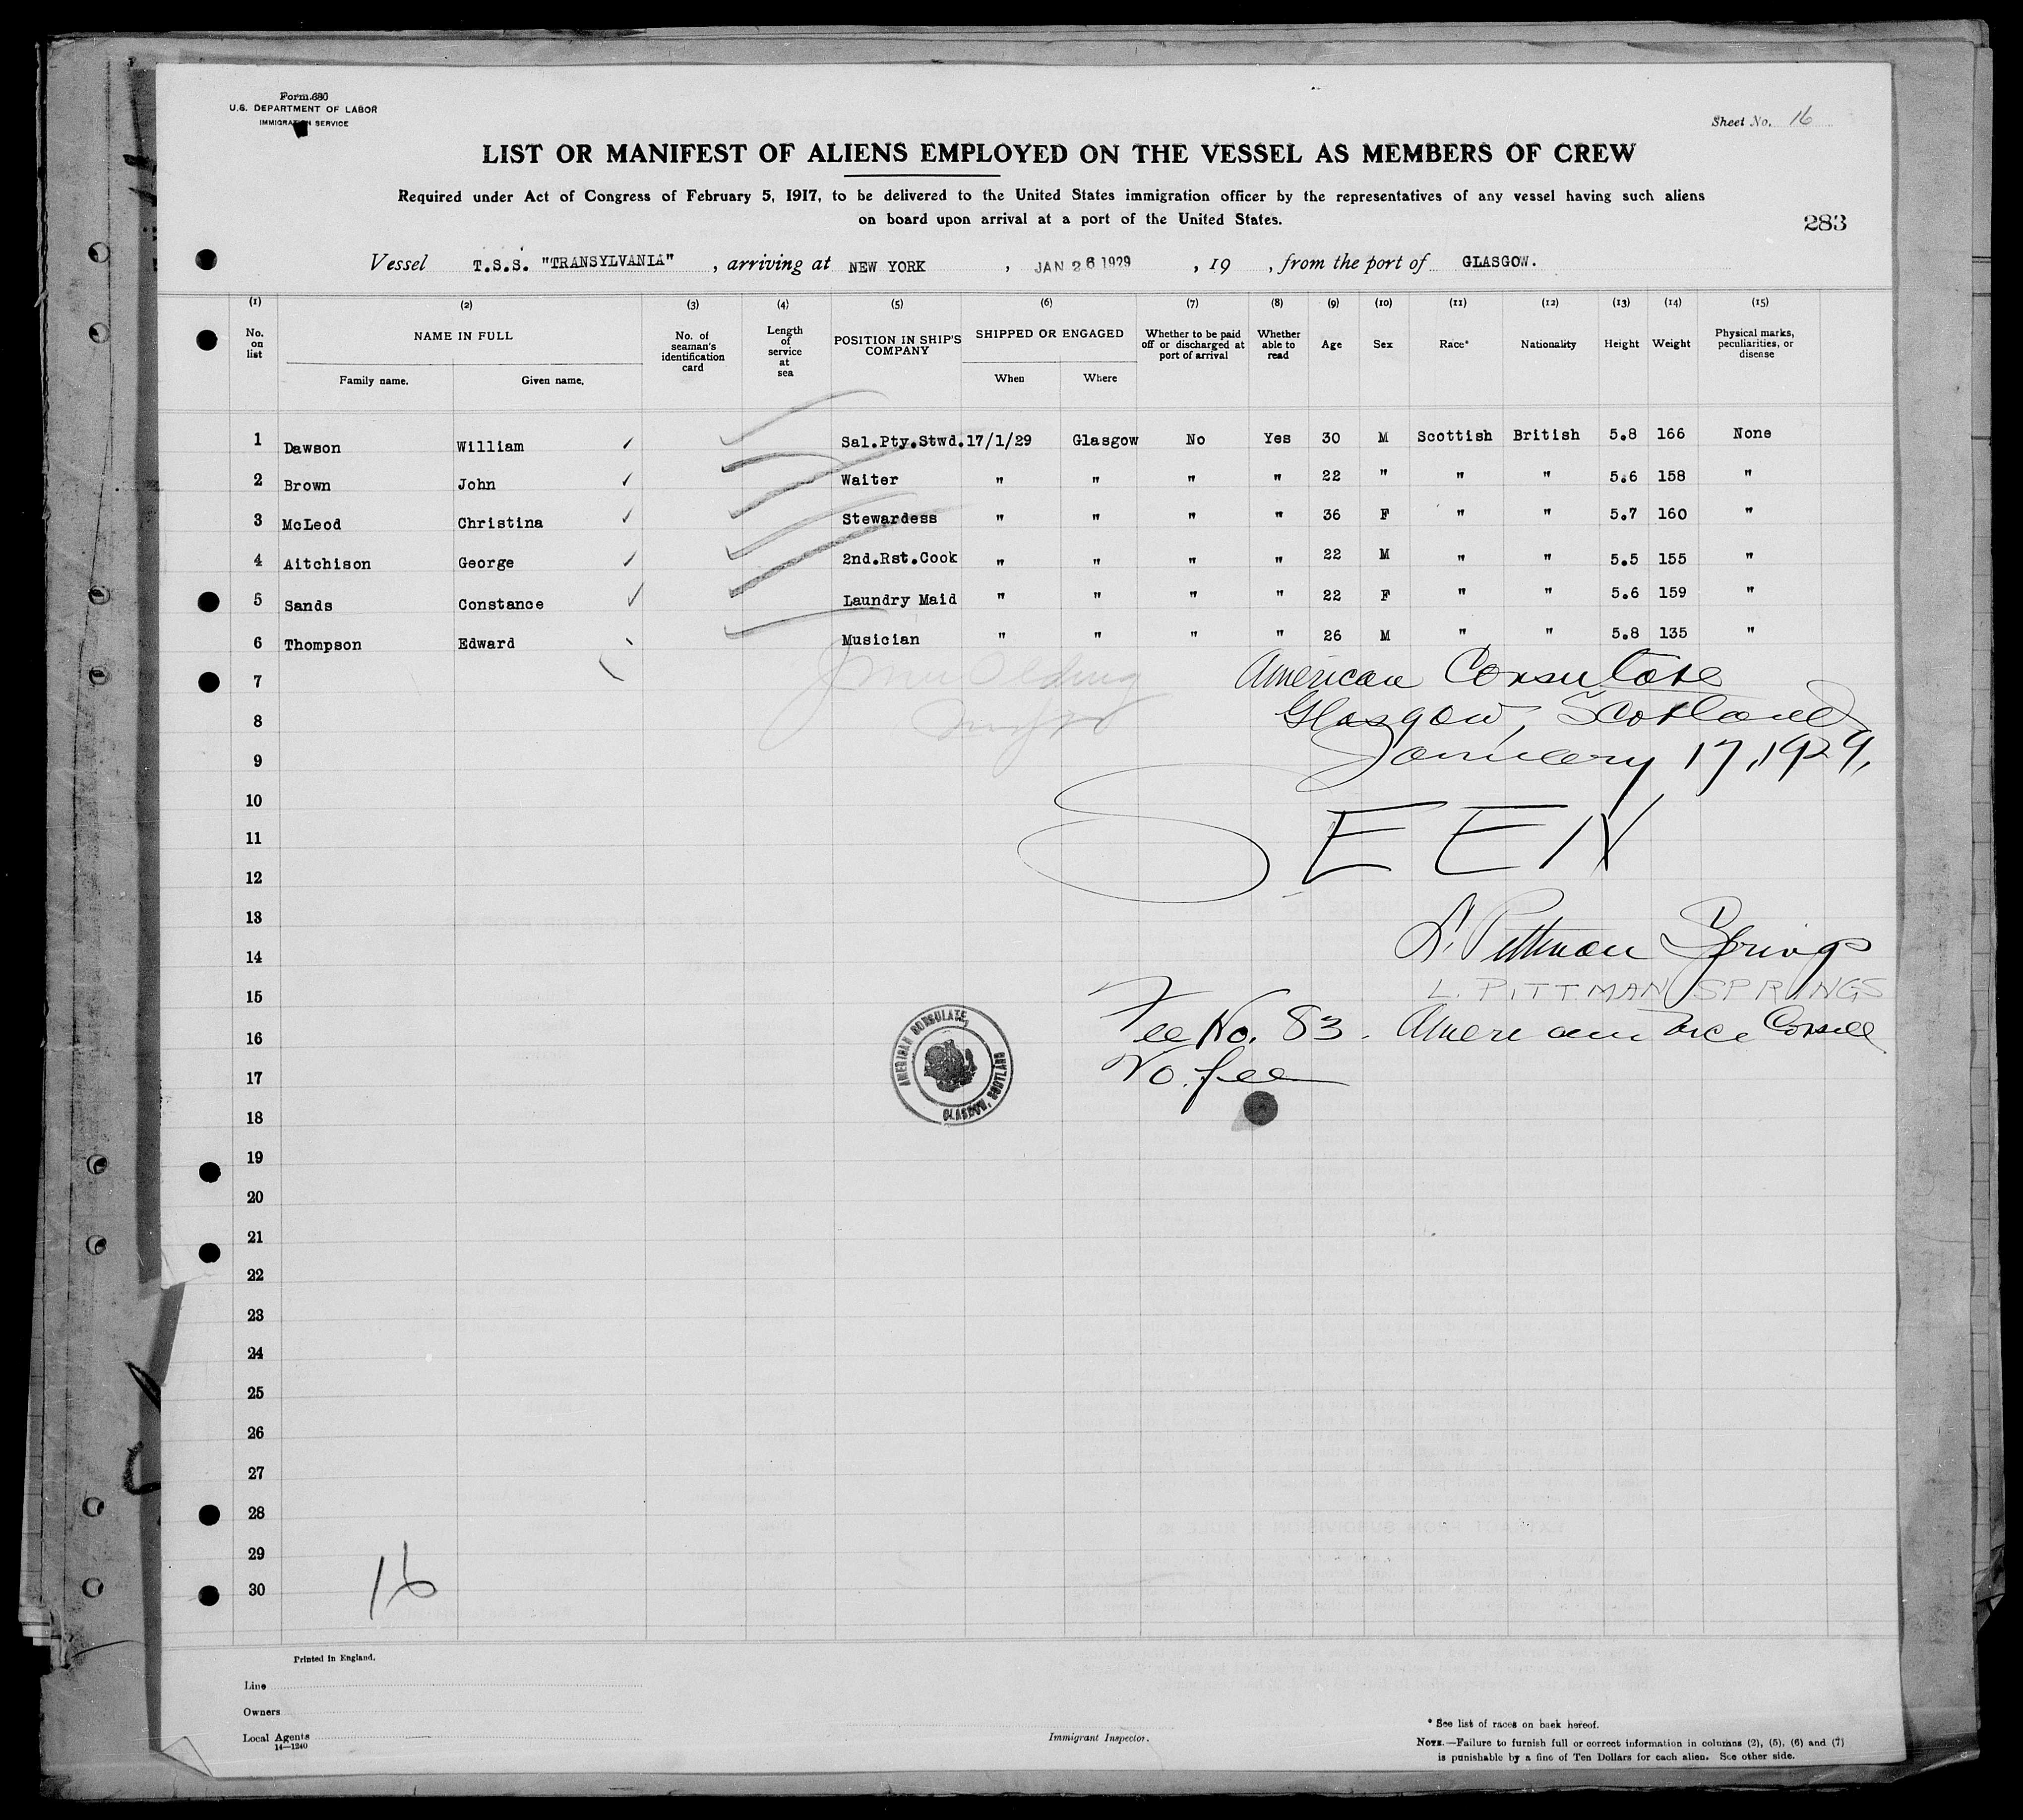 Form 680
U.S. DEPARTMENT OF LABOR
IMMIGRATION SERVICE
Sheet No. 16
LIST OR MANIFEST OF ALIENS EMPLOYED ON THE VESSEL AS MEMBERS OF CREW
Required under Act of Congress of February 5, 1917, to be delivered to the United States immigration officer by the representatives of any vessel having such aliens
on board upon arrival at a port of the United States.
283
Vessel T.S.S. "TRANSYLVANIA", arriving at NEW YORK, JAN 26 1929, 19 , from the port of GLASGOW.
(1) (2) (3) (4) (5) (6) (7) (8) (9) (10) (11) (12) (13) (14) (15)
No. on list NAME IN FULL No. of seaman's identification card Length of service at sea POSITION IN SHIP'S COMPANY SHIPPED OR ENGAGED Whether to be paid off or discharged at port of arrival Whether able to read Age Sex Race* Nationality Height Weight Physical marks, peculiarities, or disease
Family name. Given name. When Where
1 Dawson William ✓ Sal.Pty.Stwd. 17/1/29 Glasgow No Yes 30 M Scottish British 5.8 166 None
2 Brown John ✓ Waiter " " " " 22 " " " 5.6 158 "
3 McLeod Christina ✓ Stewardess " " " " 36 F " " 5.7 160 "
4 Aitchison George ✓ 2nd.Rst.Cook " " " " 22 M " " 5.5 155 "
5 Sands Constance ✓ Laundry Maid " " " " 22 F " " 5.6 159 "
6 Thompson Edward Musician " " " " 26 M " " 5.8 135 "
7 American Consulate
8 Glasgow, Scotland
9 January 17, 1929,
10
11 SEEN
12
13
14 L. Pittman Springs
15 L. PITTMAN SPRINGS
16 Fee No. 83. American Vice Consul
17 No fee
AMERICAN CONSULATE, GLASGOW, SCOTLAND
18
19
20
21
22
23
24
25
26
27
28
29
30
16
Printed in England.
Line
Owners
Local Agents
14—1240
Immigrant Inspector.
* See list of races on back hereof.
NOTE.—Failure to furnish full or correct information in columns (2), (5), (6) and (7)
is punishable by a fine of Ten Dollars for each alien. See other side.